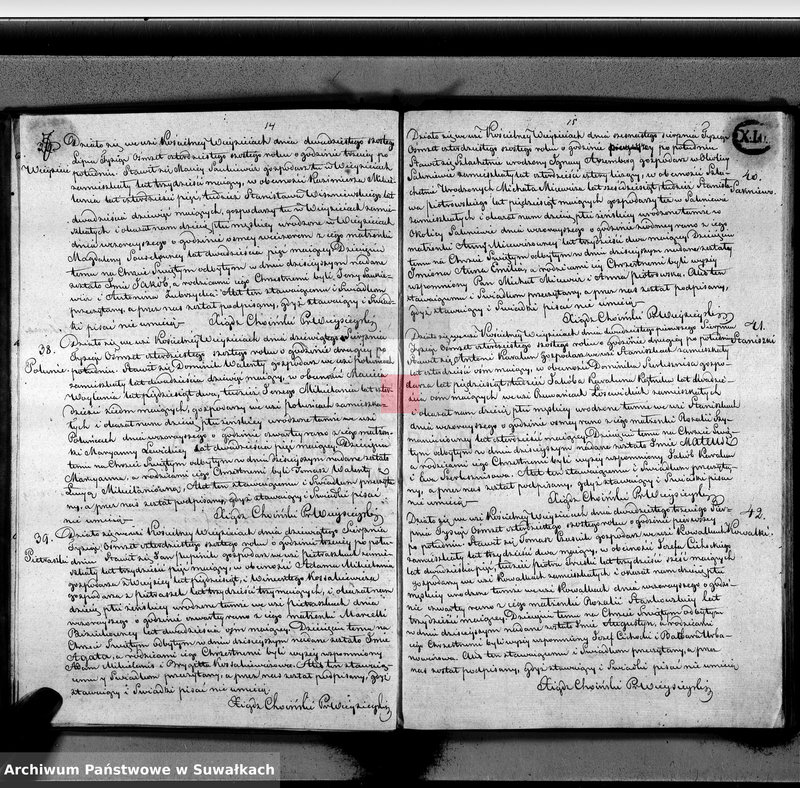 14
37
Wejsieie
Działo się we wsi Kościelney Wejsieiach dnia dwudziestego szostego
Lipca Tysiąc Osmset czterdziestego szostego roku o godzinie trzeciy po
południu Stawił się Maciey gospodarz tu w Wejsieiach
zamieszkały lat trzydzieści maiący, w obecności Kazimierza
lat czterdzieści pięć, tudzież Stanisława Wiszniewskiego lat
dwadzieścia dziewięć maiących, gospodarzy tu w Wejsieiach zamie-
szkałych i okazał nam dziecię płci męzkiey urodzone w Wejsieiach
dnia wczorayszego o godzinie osmey wieczorem z iego małżonki
Magdaleny lat dwadzieścia pięć maiącey Dziecięciu
temu na Chrzcie Świętym odbytym w dniu dzisieyszym nadane
zostało Imie Jakób, a rodzicami iego Chrzestnemi byli Jerzy
i Antonina Akt ten stawaiącemu i Świadkom
przeczytany, a przez nas został podpisany, gdyż stawaiący i Świad-
ki pisać nie umieią
Xiądz Choiński P. Wieysieyski
38.
Połunie.
Działo się we wsi Kościelney Wejsieiach dnia dziewiątego Sierpnia
Tysiąc Osmset czterdziestego szostego roku o godzinie drugiey po
południu Stawił się Dominik Walenty gospodarz we wsi
zamieszkały lat dwadzieścia dziewięć maiący, w obecności Macieia
lat pięćdziesiąt dwa, tudzież Jerzego lat czter-
dzieści siedm maiących, gospodarzy we wsi zamieszka-
łych i okazał nam dziecię płci żeńskiey urodzone tamże we wsi
dnia wczorayszego o godzinie czwartey rano z iego małżon-
ki Maryanny lat dwadzieścia pięć maiącey Dziecięciu
temu na Chrzcie Świętym odbytym w dniu dzisieyszym nadane zostało
Maryanna, a rodzicami iego Chrzestnemi byli Tomasz Walenty i
Akt ten stawaiącemu i Świadkom przeczyta-
ny, a przez nas został podpisany, gdyż stawaiący i Świadki pisać
nie umieią
Xiądz Choiński P. Wieysieyski
39.
Pietraszki
Działo się we wsi Kościelney Wejsieiach dnia dziewiątego Sierpnia
Tysiąc Osmset czterdziestego szostego roku o godzinie trzeciy po połu-
dniu Stawił się Jan gospodarz we wsi Pietraszkach zamie-
szkały lat trzydzieści pięć maiący, w obecności Adama
gospodarza z Wejsiey lat pięćdziesiąt, i Wincentego Kossakiewicza
gospodarza z Pietraszek lat trzydzieści trzy maiących, i okazał nam
dziecię płci żeńskiey urodzone tamże we wsi Pietraszkach dnia
wczorayszego o godzinie czwartey rano z iego małżonki Marcelli
lat dwadzieścia ośm maiącey Dziecięciu temu na
Chrzcie Świętym odbytym w dniu dzisieyszym nadane zostało Imie
Agata, a rodzicami iego Chrzestnemi byli wyżey wspomniony
Adam i Brygitta Kossakiewiczowa. Akt ten stawaią-
cemu i Świadkom przeczytany, a przez nas został podpisany, gdyż
stawaiący i Świadki pisać nie umieią
Xiądz Choiński P. Wieysieyski
15
XL.
40.
Działo się we wsi Kościelney Wejsieiach dnia osmnastego sierpnia Tysiąc
Osmset czterdziestego szostego roku o godzinie po południu
Stawił się Szlachetnie urodzony Ignacy gospodarz w Okolicy
zamieszkały lat czterdzieści cztery liczący, w obecności Szla-
chetnie Urodzonych Michała lat sześćdziesiąt tudzież Stanisła-
wa Piotrowskiego lat pięćdziesiąt maiących gospodarzy tu w
zamieszkałych i okazał nam dziecię płci żeńskiey urodzone tamże w
Okolicy dnia wczorayszego o godzinie siodmey rano z iego
małżonki Anny lat trzydzieści dwa maiącey Dziecięciu
temu na Chrzcie Świętym odbytym w dniu dzisieyszym nadane zostały
Imiona Anna Emilia, a rodzicami iey Chrzestnemi byli wyżey
wspomniony Pan Michał i Anna Piotrowska. Akt ten
stawaiącemu i Świadkom przeczytany, a przez nas został podpisany,
gdyż stawaiący i Świadki pisać nie umieią
Xiądz Choiński P. Wieysieyski
41.
Staniszki
Działo się we wsi Kościelney Wejsieiach dnia dwudziestego pierwszego Sierpnia
Tysiąc Osmset czterdziestego szostego roku o godzinie drugiey po południu
Stawił się Antoni Kowalew Gospodarz we wsi Staniszkach zamieszkały
lat czterdzieści ośm maiący, w obecności Dominika gospo-
darza lat pięćdziesiąt tudzież Jakóba Kowalew lat dwadzie-
ścia ośm maiących we wsi zamieszkałych
i okazał nam dziecię płci męzkiey urodzone tamże we wsi Staniszkach
dnia wczorayszego o godzinie osmey rano z iego małżonki Rozalii
lat czterdzieści maiącey. Dziecięciu temu na Chrzcie Świę-
tym odbytym w dniu dzisieyszym nadane zostało Imie MATEUSZ
a rodzicami iego Chrzestnemi byli wyżey wspomniony Jakób
i Ewa Akt ten stawaiącemu i Świadkom przeczyta-
ny, a przez nas został podpisany, gdyż stawaiący i Świadki pisać
nie umieią
Xiądz Choiński P. Wieysieyski
42.
Kowalki.
Działo się we wsi Kościelney Wejsieiach dnia dwudziestego trzeciego Sier-
pnia Tysiąc Osmset czterdziestego szostego roku o godzinie pierwszey
po południu Stawił się Tomasz gospodarz we wsi Kowalkach
zamieszkały lat trzydzieści dwa maiący, w obecności Jozefa Cichockiego
lat dwadzieścia pięć, tudzież Piotra lat trzydzieści sześć maiących
gospodarzy we wsi Kowalkach zamieszkałych i okazał nam dziecię płci
męzkiey urodzone tamże we wsi Kowalkach dnia wczorayszego o godzi-
nie czwartey rano z iego małżonki Rozalii Stankowskiey lat
trzydzieści maiącey Dziecięciu temu na Chrzcie Świętym odbytym
w dniu dzisieyszym nadane zostało Imie Augustyn, a rodzicami
iego Chrzestnemi byli wyżey wspomniony Jozef Cichocki i Barbara Urba-
nowiczowa. Akt ten stawaiącemu i Świadkom przeczytany, a przez
nas został podpisany, gdyż stawaiący i Świadki pisać nie umieią
Xiądz Choiński P. Wieysieyski
Archiwum Państwowe w Suwałkach